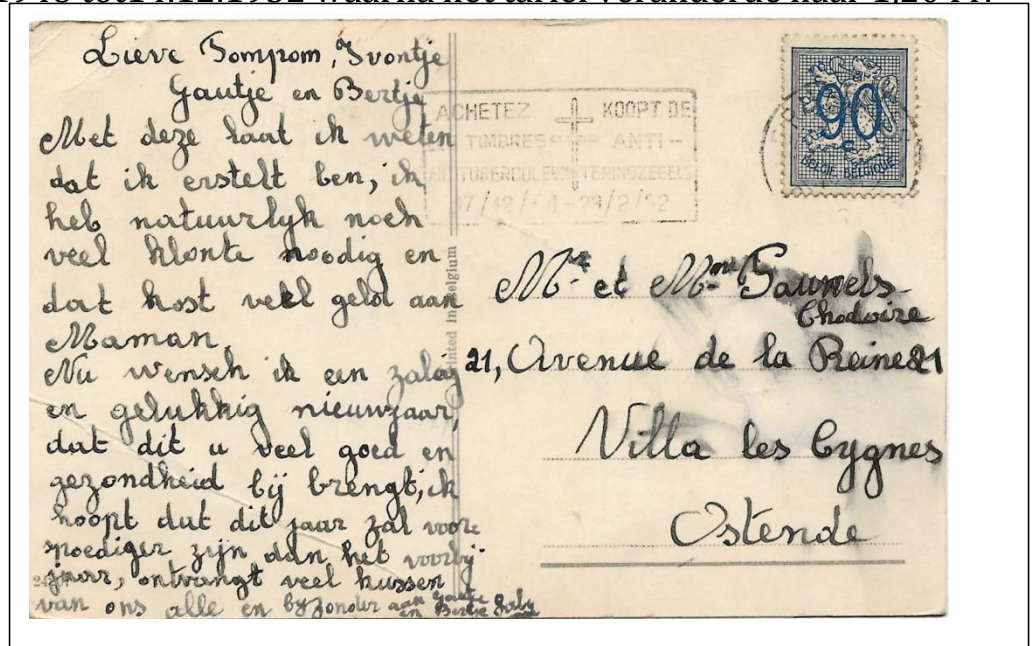 waarna het tarief veranderde naar 1,20 Fr.
Lieve Pompom, Ivontje
Gautje en Bertje
Met deze laat ik weten
dat ik erstelt ben, ik
heb natuurlyk noch
veel klonte noodig en
dat kost veel geld aan
Maman.
Nu wensch ik een zalig
en gelukkig nieuwjaar,
dat dit u veel goed en
gezondheid bij brengt, ik
hoopt dat dit jaar zal voor
spoediger zijn dan het voorbij
jaar, ontvangt veel kussen
van ons alle en byzonder aan Gautje
en Bertje Gaby
Printed in Belgium
ACHETEZ KOOPT DE
TIMBRES ANTI-
ANTITUBERCULEUX TERINGZEGELS
29/2/52
90
c
BELGIE BELGIQUE
Mr et Mme Pauwels
21, Avenue de la Reine 21
Villa les Cygnes
Ostende